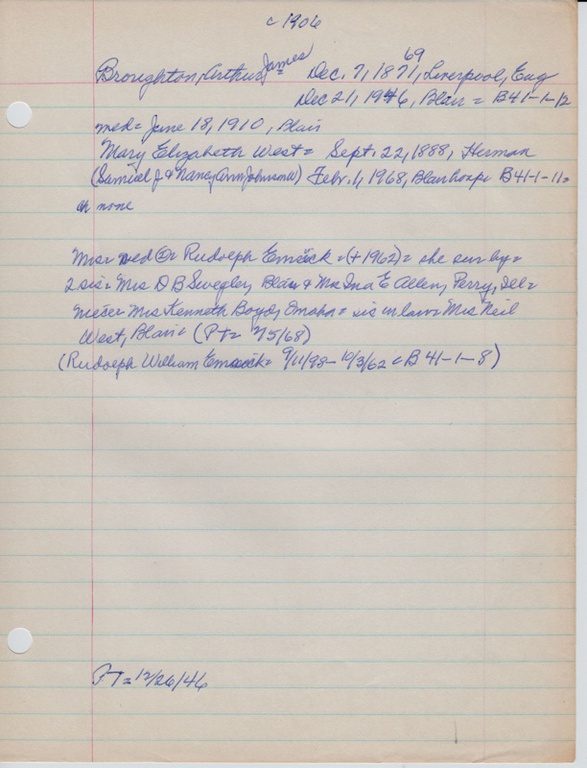 c 1906
Broughton, Arthur James Dec. 7, 1871, 69 Liverpool, Eng
Dec 21, 1946, Blair = B41-1-12
med = June 18, 1910, Blair
Mary Elizabeth West = Sept. 22, 1888, Herman
(Samuel J & Nancy Ann Johnson W) Febr. 1, 1968, Blair hospi B41-1-11=
ch none
Mrs med ② Rudolph = (+1962) = she sur by =
2 sis = Mrs D B Swegley, Blair & Mrs Ina E Allen, Perry,
niece = Mrs Kenneth Boyd, Omaha = sis in law = Mrs Neil
West, Blair = (PT = 2/5/68)
(Rudolph William = 9/11/98 - 10/3/62 = B 41-1-8)
PT = 12/26/46